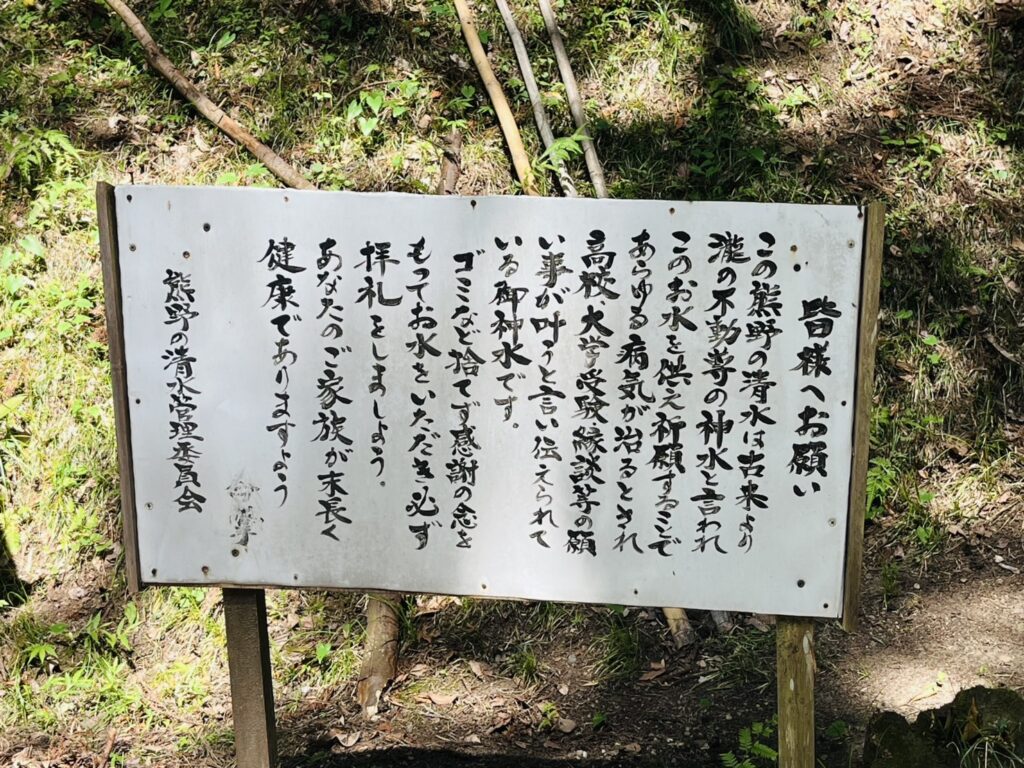 皆様へお願い
この熊野の清水は古来より
瀧の不動尊の神水と言われ
このお水を供え祈願することで
あらゆる病気が治るとされ
高校大学受験縁談等の願
い事が叶うと言い伝えられて
いる御神水です。
ゴミなど捨てず感謝の念を
もってお水をいただき必ず
拝礼をしましょう。
あなたのご家族が末長く
健康でありますよう
熊野の清水管理委員会